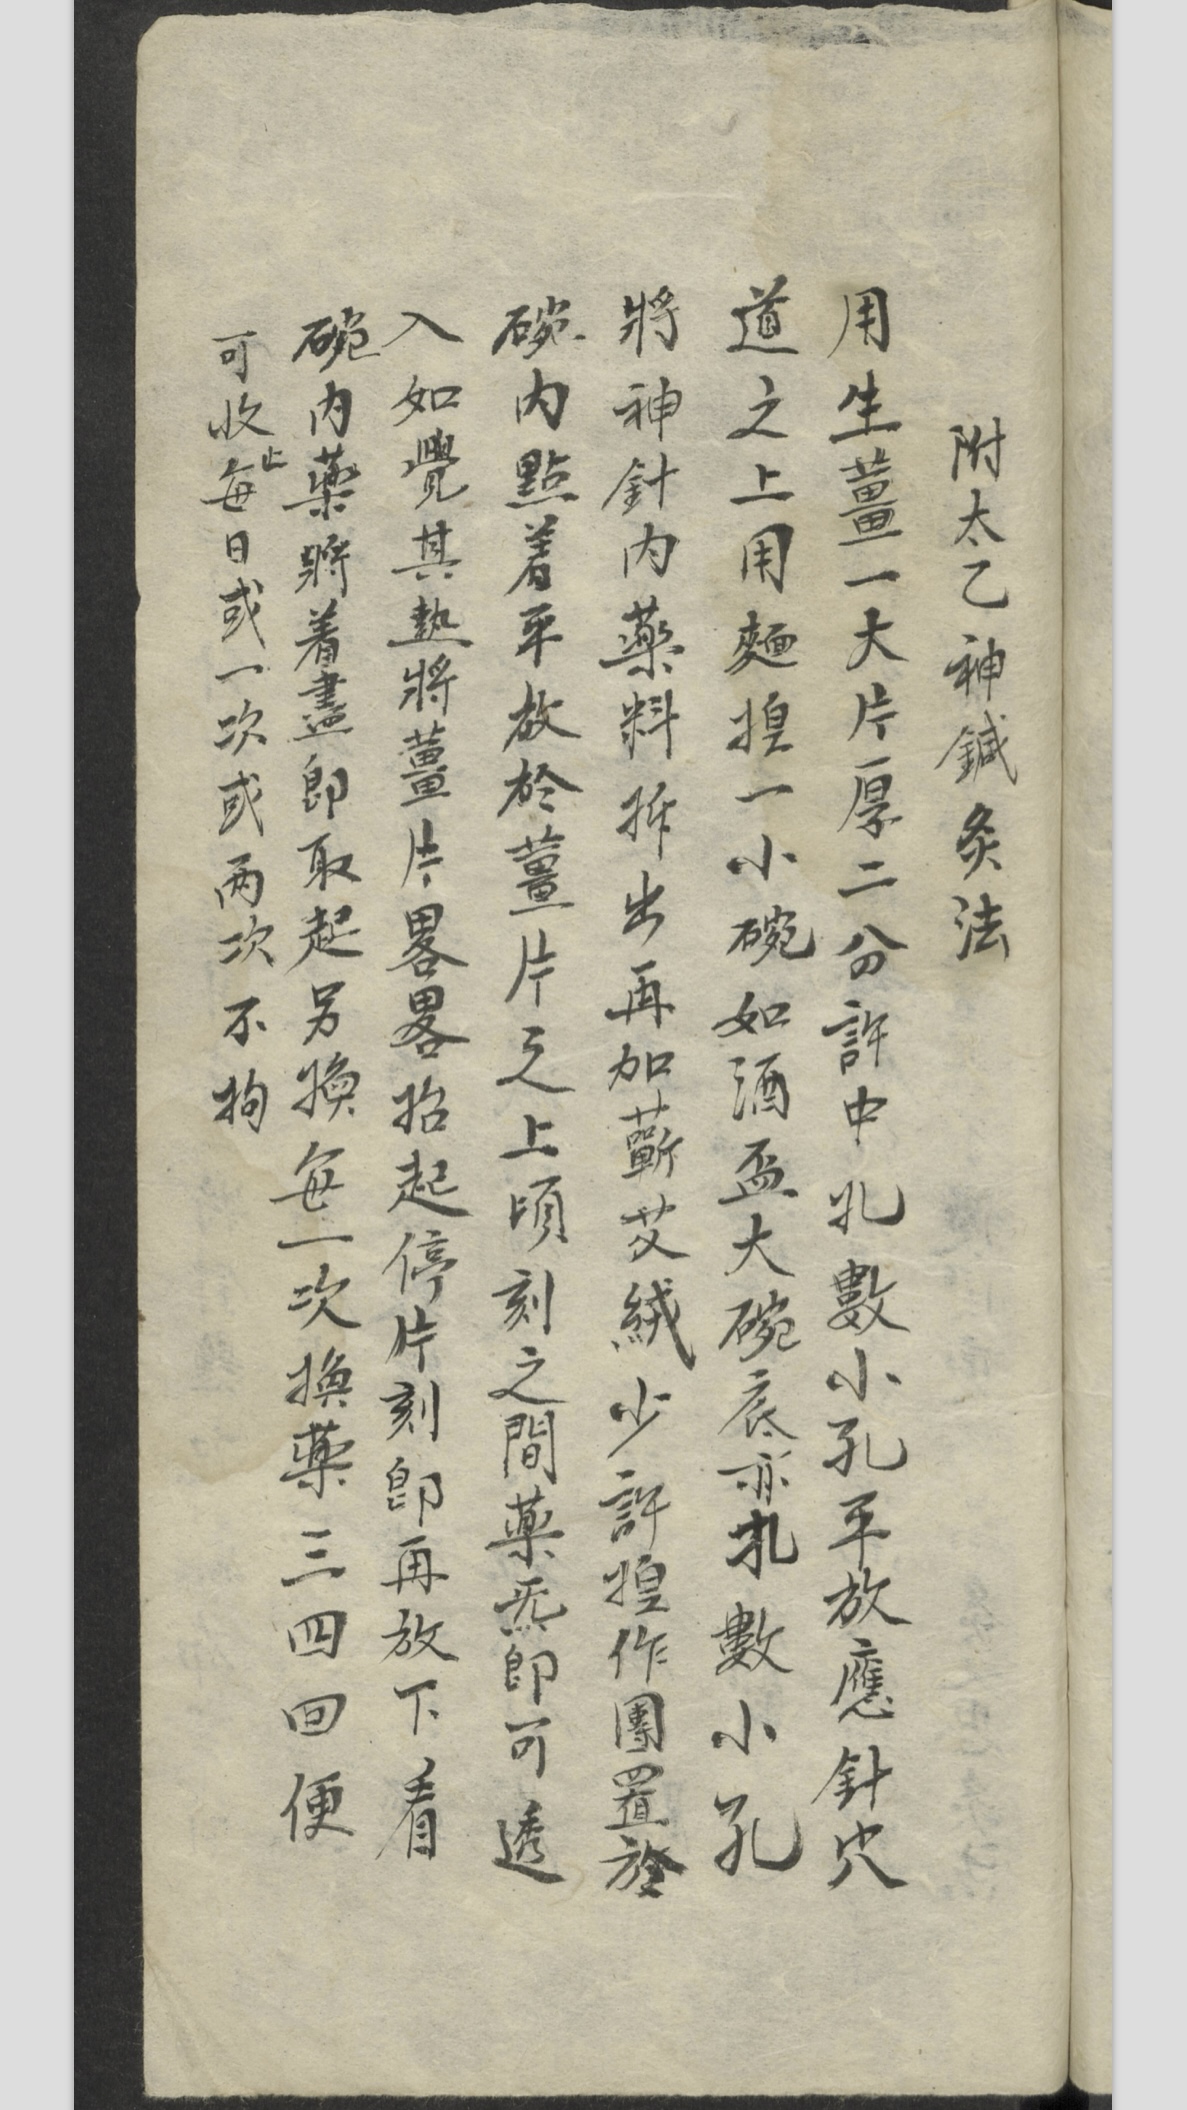 附太乙神鍼灸法
用生薑一大片厚二分許中扎數小孔平放應針穴
道之上用麵揑一小碗如酒盃大碗底亦扎數小孔
將神針内藥料拆出再加蘄艾絨少許揑作團置於
碗内點着平放於薑片之上頃刻之間藥炁即可透
入如覺其熱將薑片畧畧抬起停片刻即再放下看
碗内藥將着盡即取起另換每一次換藥三四回便
可收止每日或一次或两次不拘